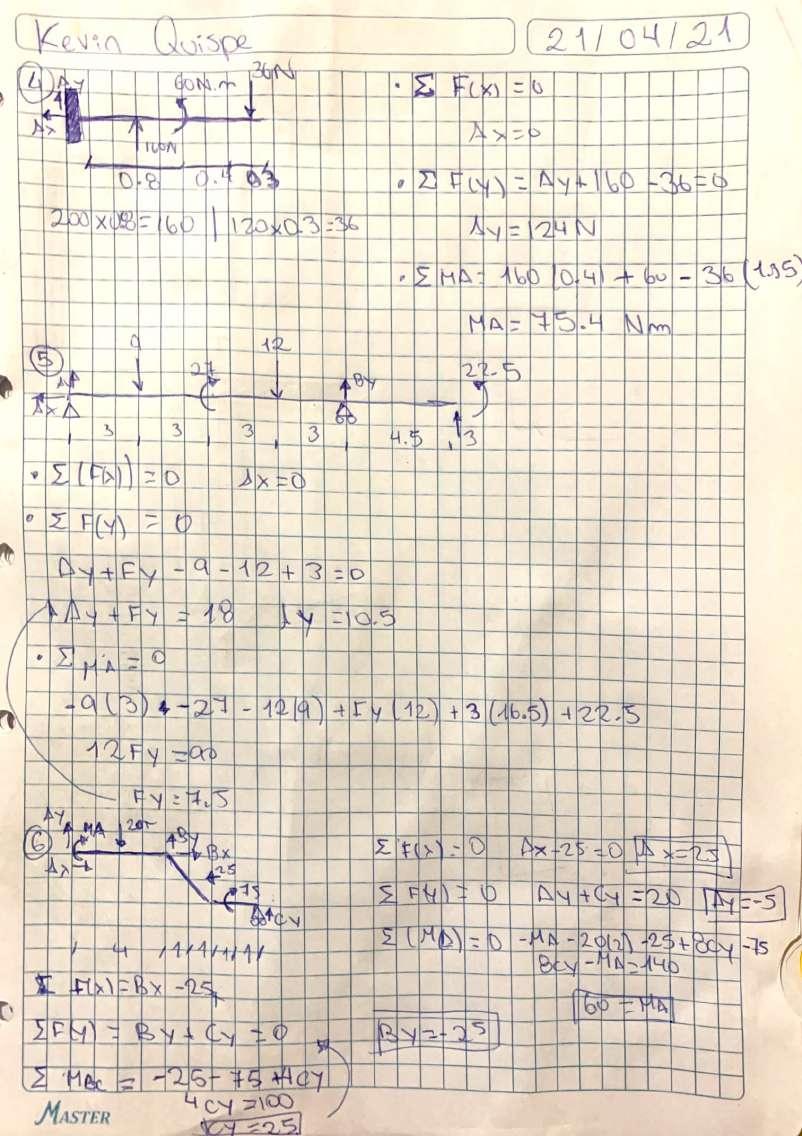 Kevin Quispe
21/04/21
4
Ay
60N.m
36N
Ax
160N
0.8 0.4 0.3
200x0.8=160 | 120x0.3=36
• Σ F(x) = 0
Ax=0
• Σ F(y) = Ay+160-36=0
Ay=124N
• ΣMA= 160(0.4) + 60 - 36(1.35)
MA= 75.4 Nm
5
9
27
12
By
22.5
Ay
Ax
3 3 3 3 4.5 3
• Σ(F(x)) = 0 Ax=0
• Σ F(y) = 0
Ay+Fy -9-12+3=0
Ay+Fy = 18 Ay=10.5
• ΣMA=0
-9(3) -27 - 12(9) + Fy(12) + 3(16.5) + 22.5
12Fy=90
Fy=7.5
6
Ay
MA
20T
By
Bx
Ax
25
75
Cy
4
Σ F(x)=0 Ax-25=0 Ax=25
Σ F(y)=0 Ay+Cy=20 Ay=-5
Σ(MA)=0 -MA-20(2)-25+8Cy-75
8Cy-MA=140
60=MA
Σ F(x)=Bx-25
ΣF(y) = By+Cy=0 By=-25
Σ MBC = -25-75+4Cy
4Cy=100
Cy=25
MASTER